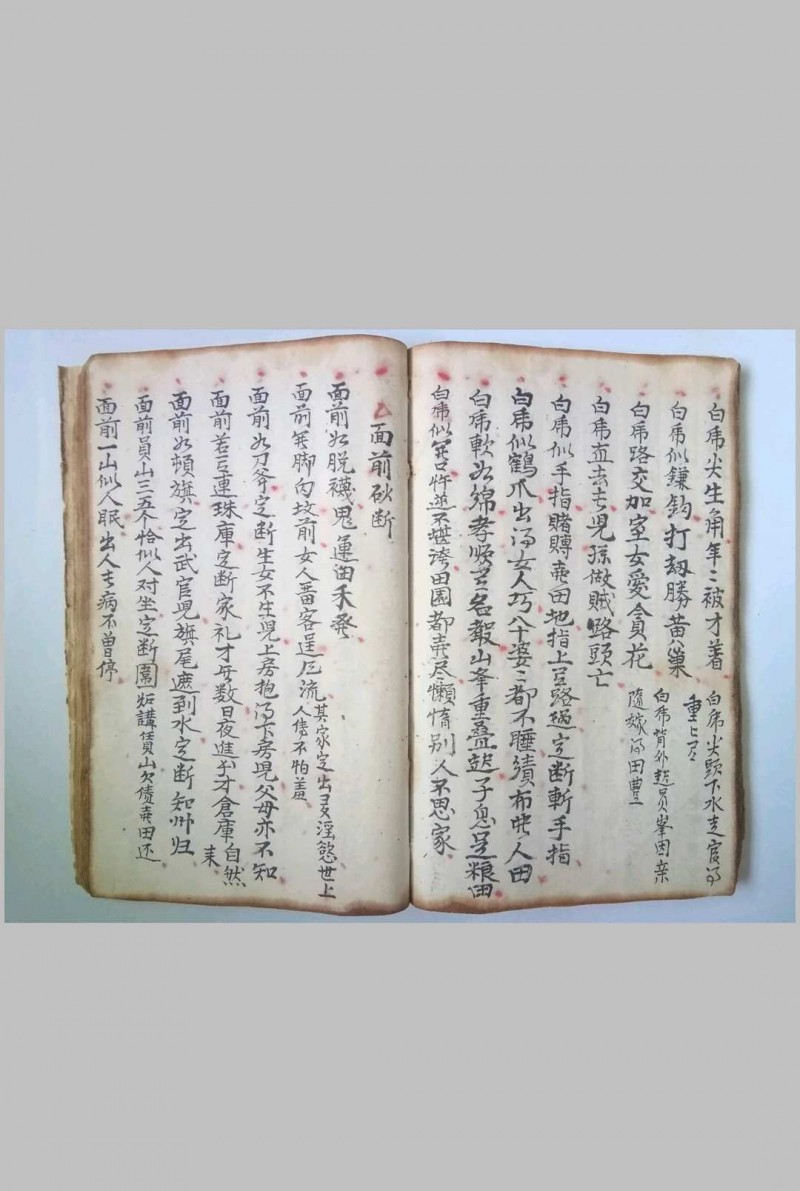 白虎尖生角年〻被才着
白虎尖頭下水走官
重〻
白虎似鐮鈎打刼勝黄巢
白虎背外起員峯因亲
隨嫁田豊
白虎路交加室女愛貪花
白虎直去去児孫做賊路頭亡
白虎似手指賭賻賣田地指上有路過定断斬手指
白虎似鶴爪出女人巧八十婆〻都不睡績布共人田
白虎軟如綿孝順芸名報山峯重叠起子息足粮田
白虎似開口忤逆不堪誇田園都賣尽懶惰别人不思家
面前砂断
面前如脱襪鬼運田禾發
面前開脚向坟前女人畨客逞风流其家定出多淫慾世上
人傳不怕羞
面前如刀斧定断生女不生児上房抱下房児父母亦不知
面前若有連珠庫定断家礼才無数日夜進才倉庫自然
来
面前如頓旗定出武官児旗尾遮到水定断知州归
面前員山三五个恰似人对坐定断園山欠债賣田还
面前一山似人眠出人去病不曾停